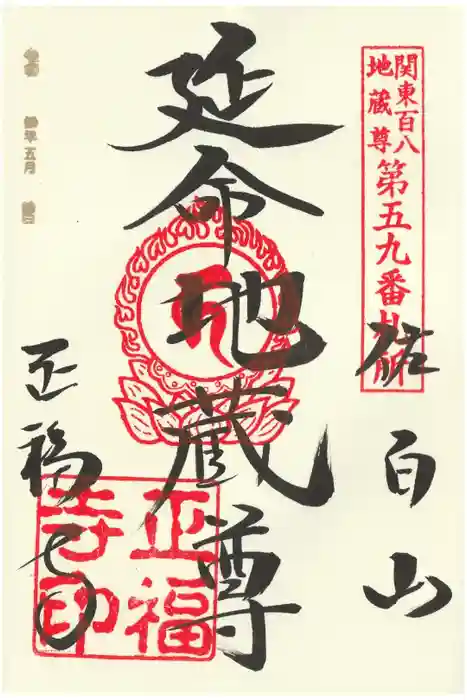 関東百八
地蔵尊
第五九番札所
佐白山
延命地蔵尊
正福寺
正福
寺印
年五月